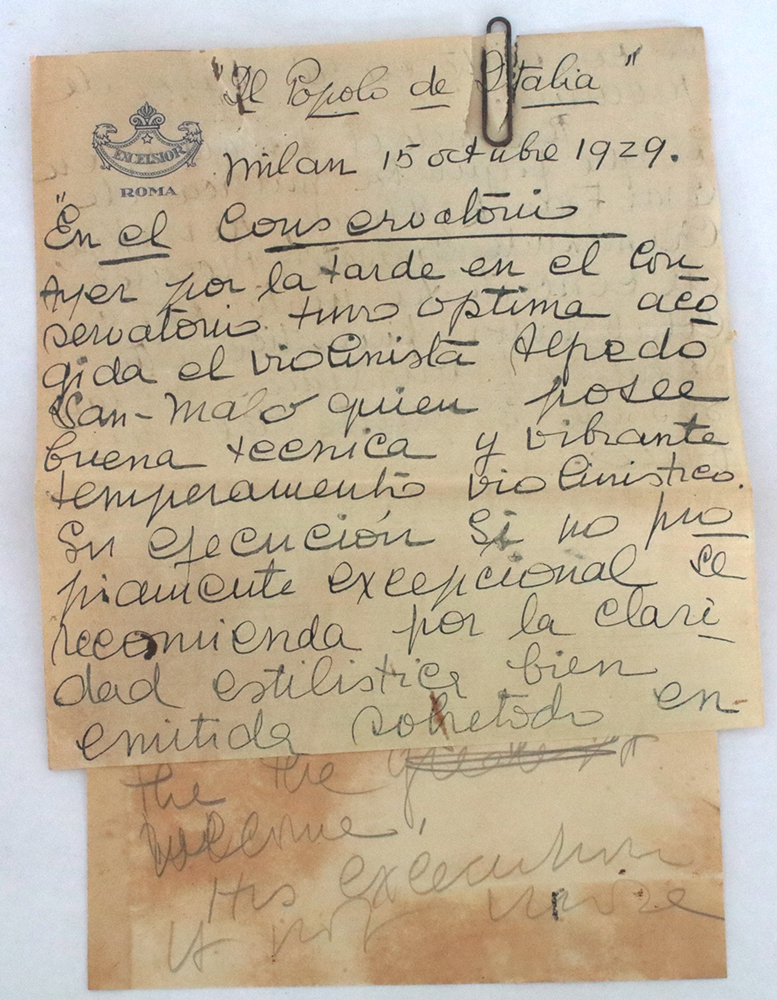 "Il Popolo de Italia"
EXCELSIOR
ROMA
Milan 15 octubre 1929.
"En el Conservatorio
Ayer por la tarde en el Con
servatorio tuvo optima aco
gida el violinista Alfredo
San-Malo quien posee
buena tecnica y vibrante
temperamento violinistico.
Su ejecución Si no pro
piamente excepcional se
recomienda por la clari
dad estilistica bien
emitida sobretodo en
the the greatest
Welcome,
His execution
If not